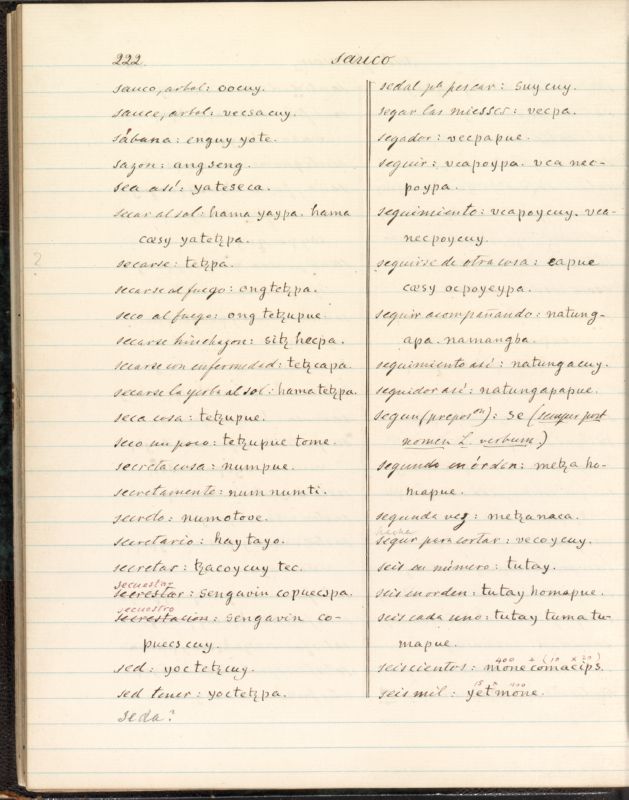 222.
sauco
sauco, arbol: oocuy.
sauce, arbol: vecsacuy.
sábana: enguy yote.
sazon: angseng.
sea así: yateseca.
secar al sol: hama yaypa. hama
cœsy yatetzpa.
secarse: tetzpa.
secarse al fuego: ongtetzpa.
seco al fuego: ong tetzupue.
secarse hinchazon: sitz hecpa.
secarse con enfermedad: tetzcapa.
secarse la yerba al sol: hamatetzpa.
seca cosa: tetzupue.
seco un poco: tetzupue tome.
secreta cosa: numpue.
secretamente: numnumti.
secreto: numotove.
secretario: haytayo.
secretar: tzacoycuy tec.
secuestar
secrestar: sengavin copuecspa.
secuestro
secrestacion: sengavin co-
puecscuy.
sed: yoctetzcuy.
sed tener: yoctetzpa.
seda?
?
sedal pa pescar: suycuy.
segar las miesses: vecpa.
segador: vecpapue.
seguir: vcapoypa. vca nec-
poypa.
seguimiento: vcapoycuy. vca-
necpoycuy.
seguirse de otra cosa: eapue
cœsy ocpoyeypa.
seguir acompañando: natung-
apa. namangba.
seguimiento así: natungacuy.
seguidor así: natungapapue.
segun (preposon): se (semper post
nomen L. verbum.)
segundo en órden: metza ho-
mapue.
segunda vez: metzanaca.
hacha
segur para cortar: vecoycuy.
seis en número: tutay.
seis en orden: tutay homapue.
seis cada uno: tutay tuma tu-
mapue.
400 + (10 x 20)
seiscientos: mone comacips.
15 x 400
seis mil: yetmone.